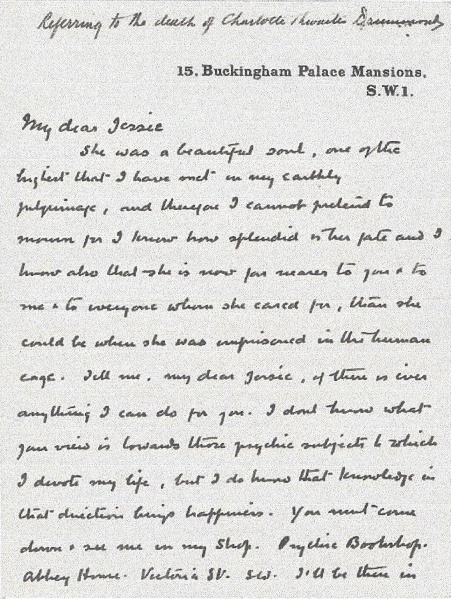 Referring to the death of Charlotte Thwaites Drummond
15, Buckingham Palace Mansions,
S.W.1.
My dear Jessie
She was a beautiful soul, one of the
highest that I have met in my earthly
pilgrimage, and therefore I cannot pretend to
mourn for I know how splendid is her fate and I
know also that she is now far nearer to you & to
me & to everyone whom she cared for, than she
could be when she was imprisoned in the human
cage. Tell me, my dear Jessie, if there is ever
anything I can do for you. I dont know what
your view is towards those psychic subjects to which
I devote my life, but I do know that knowledge in
that direction brings happiness. You must come
down & see me in my Shop. Psychic Bookshop.
Abbey House. Victoria St. S.W. I'll be there in